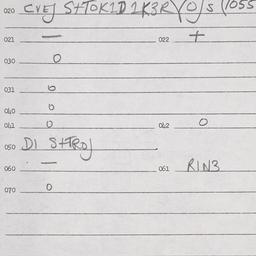 020 CVEJ S++TOK1D1K3RYO/S (1055
021 — 022 +
030 O
031 O
040 O
041 O 042 O
050 DI S++ROJ
060 — 061 RIN3
070 O